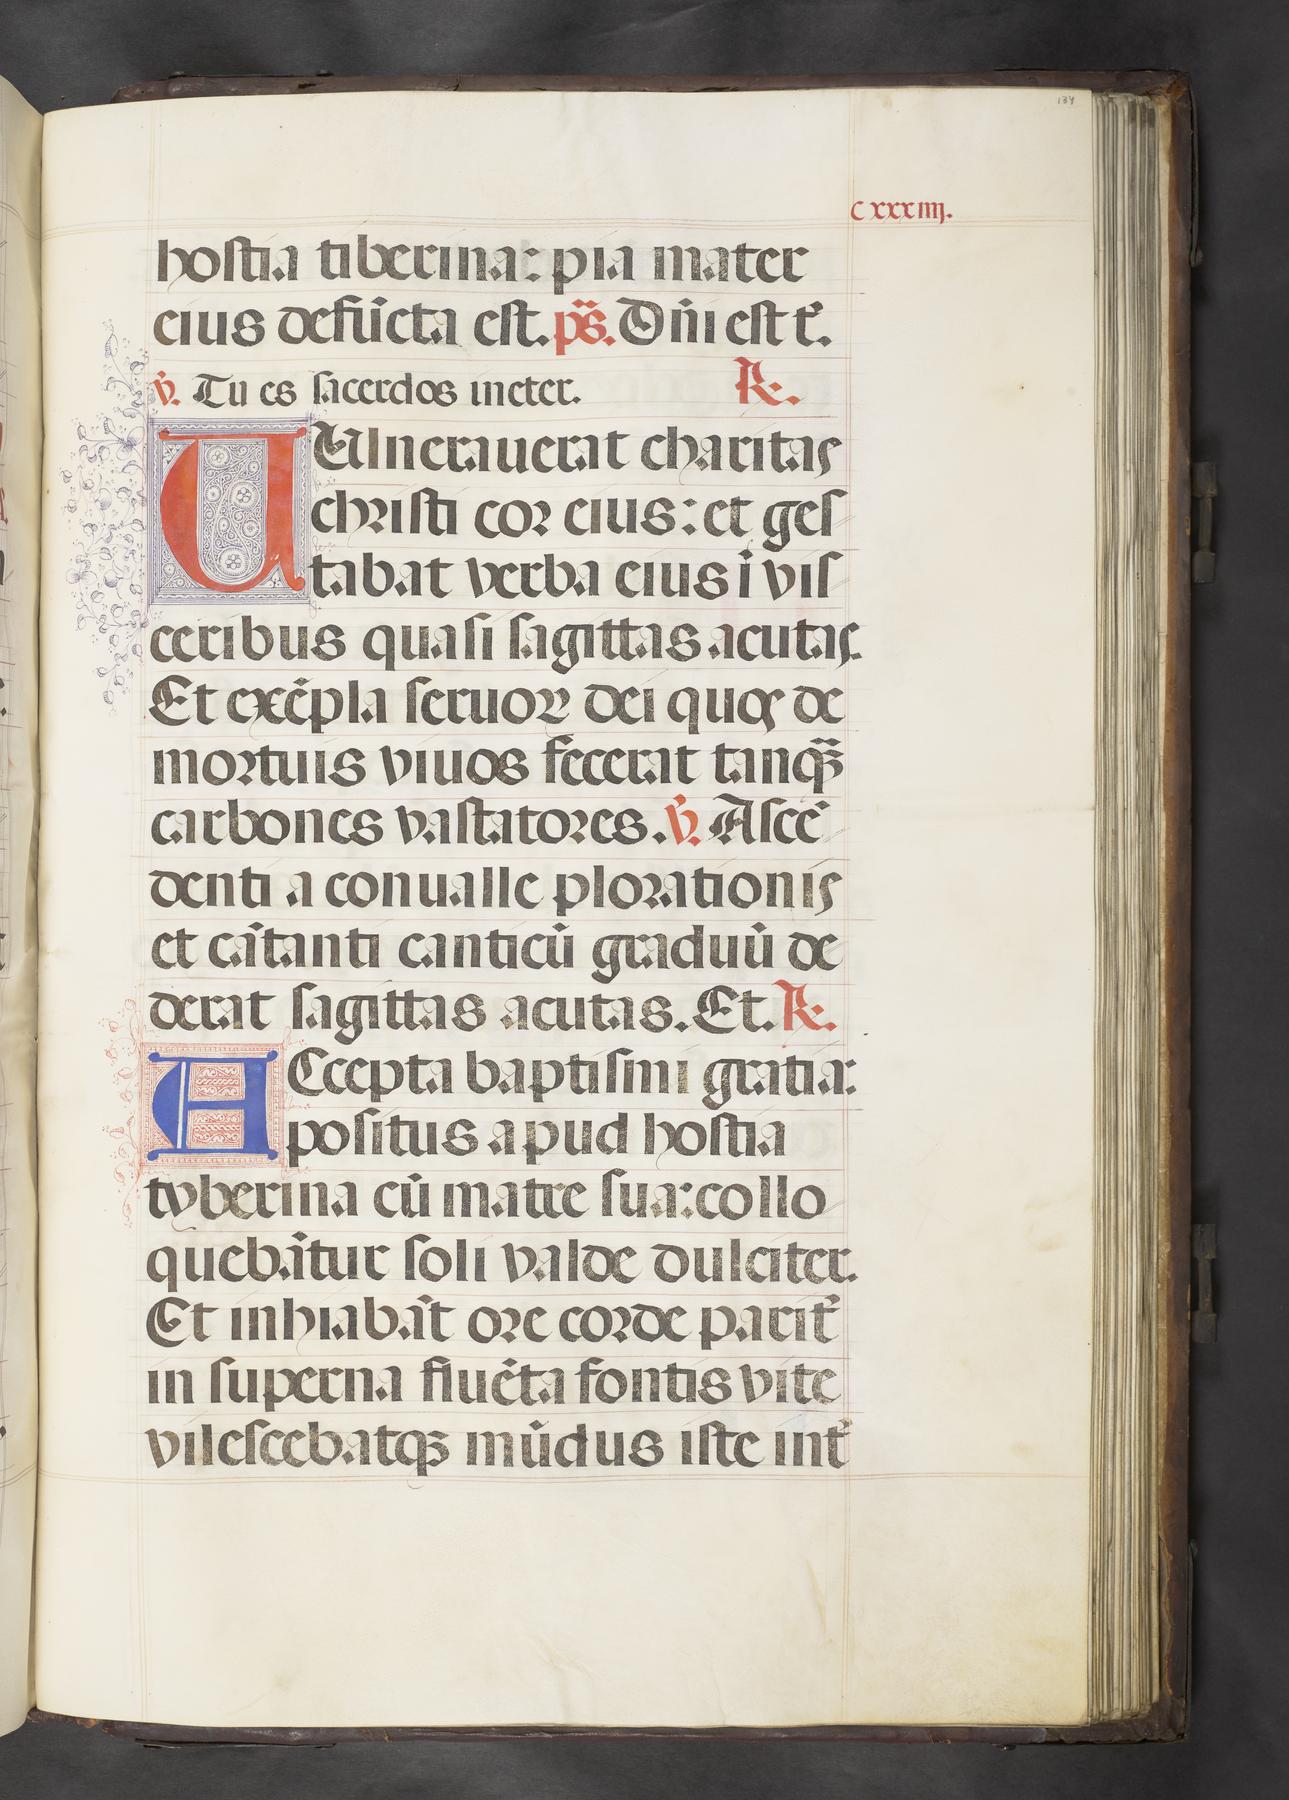 134
cxxxiiij.
hostia tiberina: pia mater
eius defūcta est. ps̄. Dn̄i est t̄.
v̄. Tu es sacerdos ineter. R.
UUlnerauerat charitas
christi cor eius: et ges
tabat verba eius ī vis
ceribus quasi sagittas acutas.
Et exēpla seruoꝝ dei quos de
mortuis viuos fecerat tanqꝫ̄
carbones vastatores. v̄. Ascē
denti a conualle plorationis
et cātanti canticū graduū de
derat sagittas acutas. Et. R.
ACcepta baptismi gratia:
positus apud hostia
tyberina cū matre sua: collo
quebātur soli valde dulciter.
Et inhiabāt ore corde parit̄
in superna fluēta fontis vite
vilescebatqꝫ mūdus iste int̄